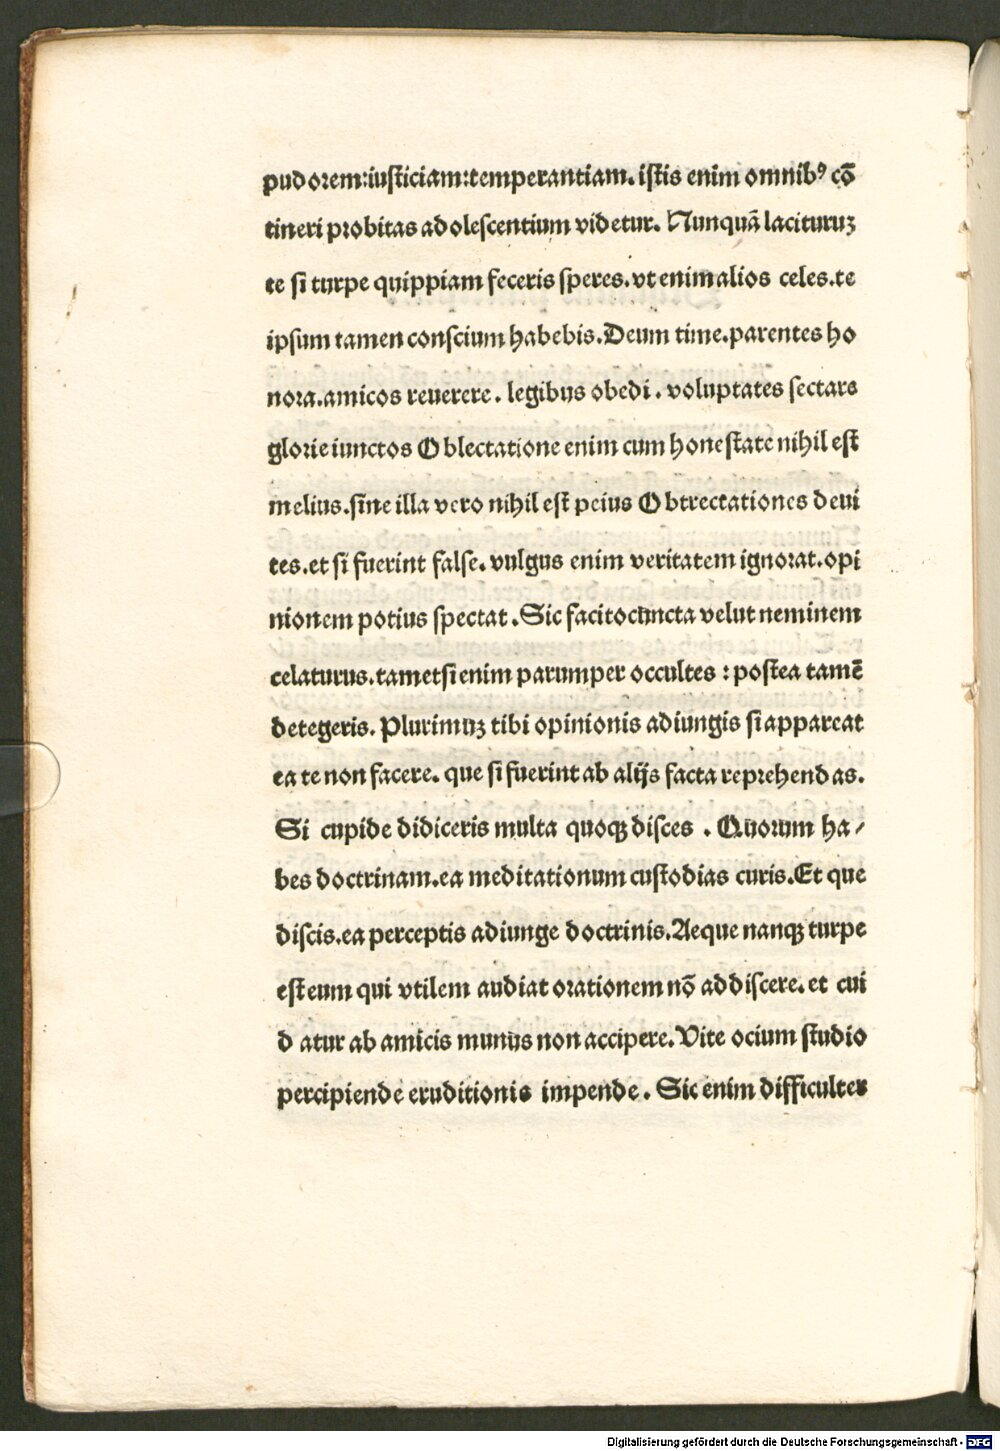 pudorem:iusticiam:temperantiam. istis enim omnibꝰ cō
tineri probitas adolescentium videtur. Nunquā lacituruꝫ
te si turpe quippiam feceris speres. vt enim alios celes. te
ipsum tamen conscium habebis. Deum time. parentes ho
nora. amicos reuerere. legibus obedi. voluptates sectare
glorie iunctos Oblectatione enim cum honestate nihil est
melius. sine illa vero nihil est peius Obtrectationes deui
tes. et si fuerint false. vulgus enim veritatem ignorat. opi
nionem potius spectat. Sic facito cuncta velut neminem
celaturus. tametsi enim parumper occultes : postea tamē
detegeris. Plurimuꝫ tibi opinionis adiungis si appareat
ea te non facere. que si fuerint ab alijs facta reprehendas.
Si cupide didiceris multa quoqꝫ disces . Quorum ha/
bes doctrinam. ea meditationum custodias curis. Et que
discis. ea perceptis adiunge doctrinis. Aeque nanqꝫ turpe
est eum qui vtilem audiat orationem nō addiscere. et cui
datur ab amicis munus non accipere. Vite ocium studio
percipiende eruditionis impende. Sic enim difficulter
Digitalisierung gefördert durch die Deutsche Forschungsgemeinschaft - DFG